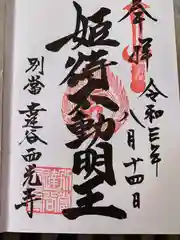 奉拝
令和三年
八月十四日
姫待不動明王
別當 達谷西光寺